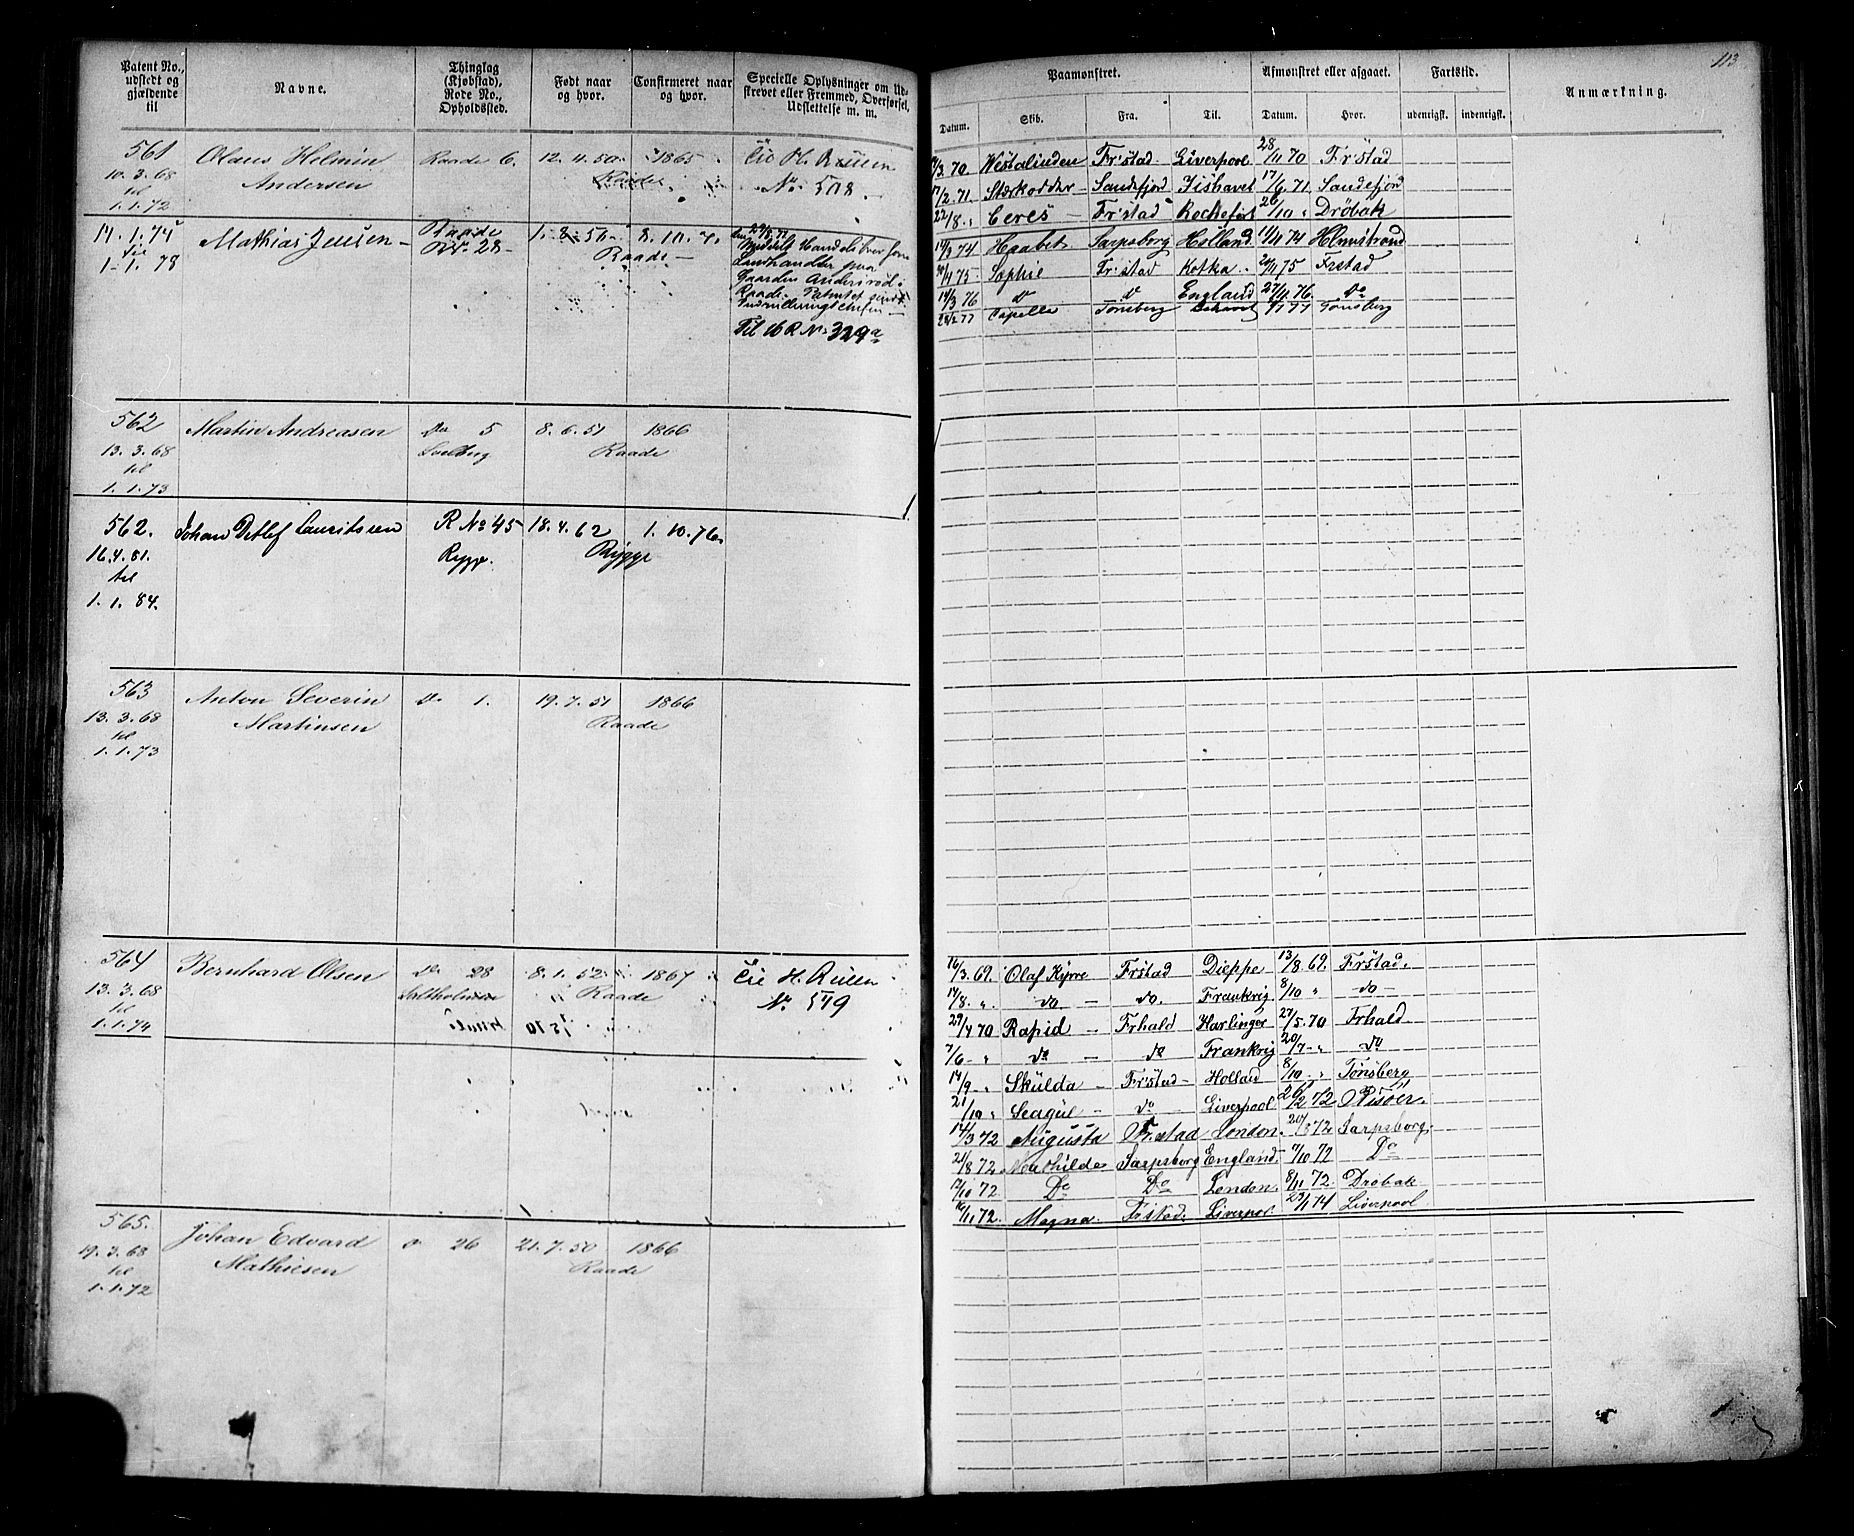 113
Patent No., udstedt og gjældende til
Navne.
Thinglag (Kjøbstad), Rode No., Opholdssted.
Født naar og hvor.
Confirmeret naar og hvor.
Specielle Oplysninger om Udskrevet eller Fremmed, Overførsel, Udslettelse m. m.
Paamønstret.
Afmønstret eller afgaaet.
Fartstid.
Anmærkning.
Datum. Skib. Fra. Til. Datum. Hvor. udenrigsk. indenrigsk.
561 Olaus Helmin Raade 6. 12.4.50. 1865
10.3.68 Andersen Raade No. 508
til
1.1.72
/3.70. Westalinden Fr:stad. Liverpool 28/11 70 Fr:stad
17/2.71. Stærkodder Sandefjord Ishavet 17/6.71. Sandefjord
22/8. " Ceres Fr:stad Rochefort 26/10 " Drøbak
14.1.74 Mathias Jensen Raade
til No. 28 Raade
1.1.78
Landhandler paa
Til R No 329a
14/3 74 Haabet Sarpsborg Holland 74 Holmstrand
75 Sophie Fr:stad Kotka 75 Frstad
14/3 76 Do Do England 27/11.76. Do
28/2.77 Capella Tønsberg 77 Tønsberg
562 Martin Andreasen Do 5 8.6.51 1866
13.3.68 Raade
til
1.1.73
562. Johan Detlef Lauritssen R No 45 18.4.62 1.10.76.
16.4.81. Rygge. Rygge
til
1.1.84.
563 Anton Severin Do 1. 19.7.51 1866
13.3.68 Martinsen Raade
til
1.1.73
564 Bernhard Olsen Do 28 8.1.52 1867
13.3.68 Saltholmen Raade No. 519
til
1.1.74
16/3.69. Olaf Kyrre Frstad Dieppe 13/8.69. Frstad.
14/8. " do do. Frankrig 8/10 " do
29/4 70 Rapid Frhald Harlingen 27/5.70 Frhald
7/6 " do do Frankrig 20/7 " do
14/9 " Skulda Fr:stad Holland 8/10 " Tønsberg
21/10 " Seagul do Liverpool 26/2 72 Risøer.
14/3 72 Augusta Fr.stad London. 20/5 72 Sarpsborg.
21/8 72 Sarpsborg England. 7/10 72 Do
12/10 72. Do Do London. 8/11 72. Drøbak
16/11.72. Magna. Frstad. Liverpool 23/1 74 Liverpool
565. Johan Edvard 26 21.7.50 1866
19.3.68 Mathiesen Raade
til
1.1.72